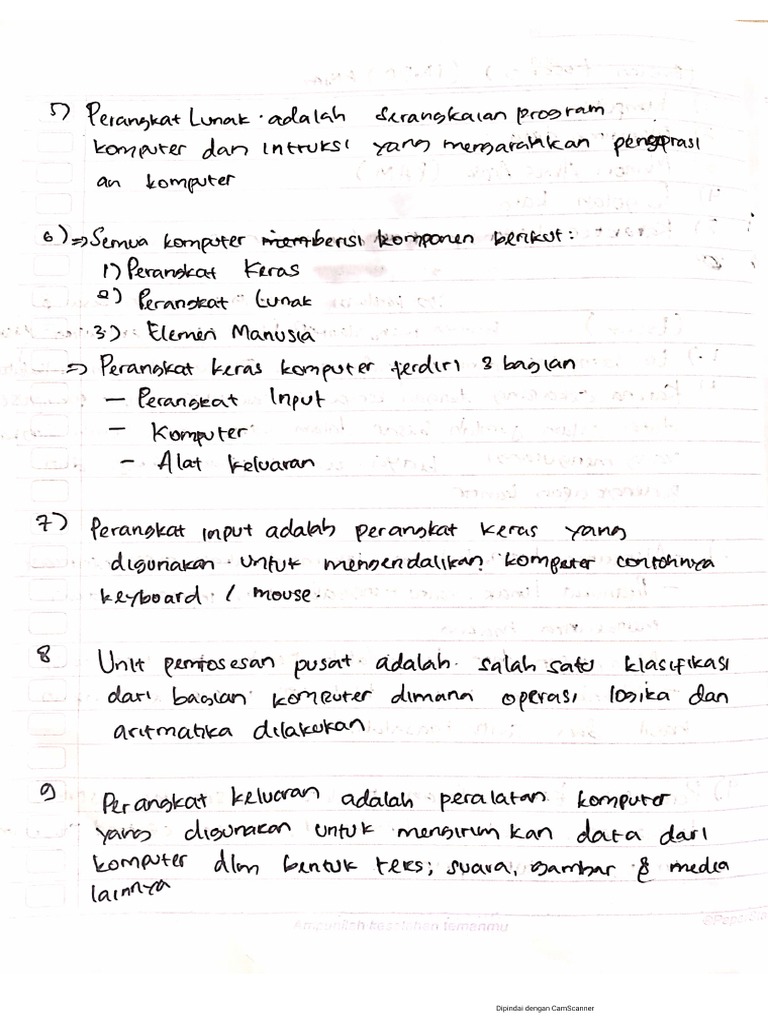 5) Perangkat Lunak adalah serangkaian program
komputer dan intruksi yang mengarahkan pengoprasi
an komputer
6) => Semua komputer berisi komponen berikut:
1) Perangkat Keras
2) Perangkat Lunak
3) Elemen Manusia
=> Perangkat keras komputer terdiri 3 bagian
- Perangkat Input
- Komputer
- Alat keluaran
7) Perangkat input adalah perangkat keras yang
digunakan untuk mengendalikan komputer contohnya
keyboard / mouse.
8 Unit pemrosesan pusat adalah salah satu klasifikasi
dari bagian komputer dimana operasi logika dan
aritmatika dilakukan
9 Perangkat keluaran adalah peralatan komputer
yang digunakan untuk mengirim kan data dari
komputer dlm bentuk teks, suara, gambar & media
lainnya
Dipindai dengan CamScanner